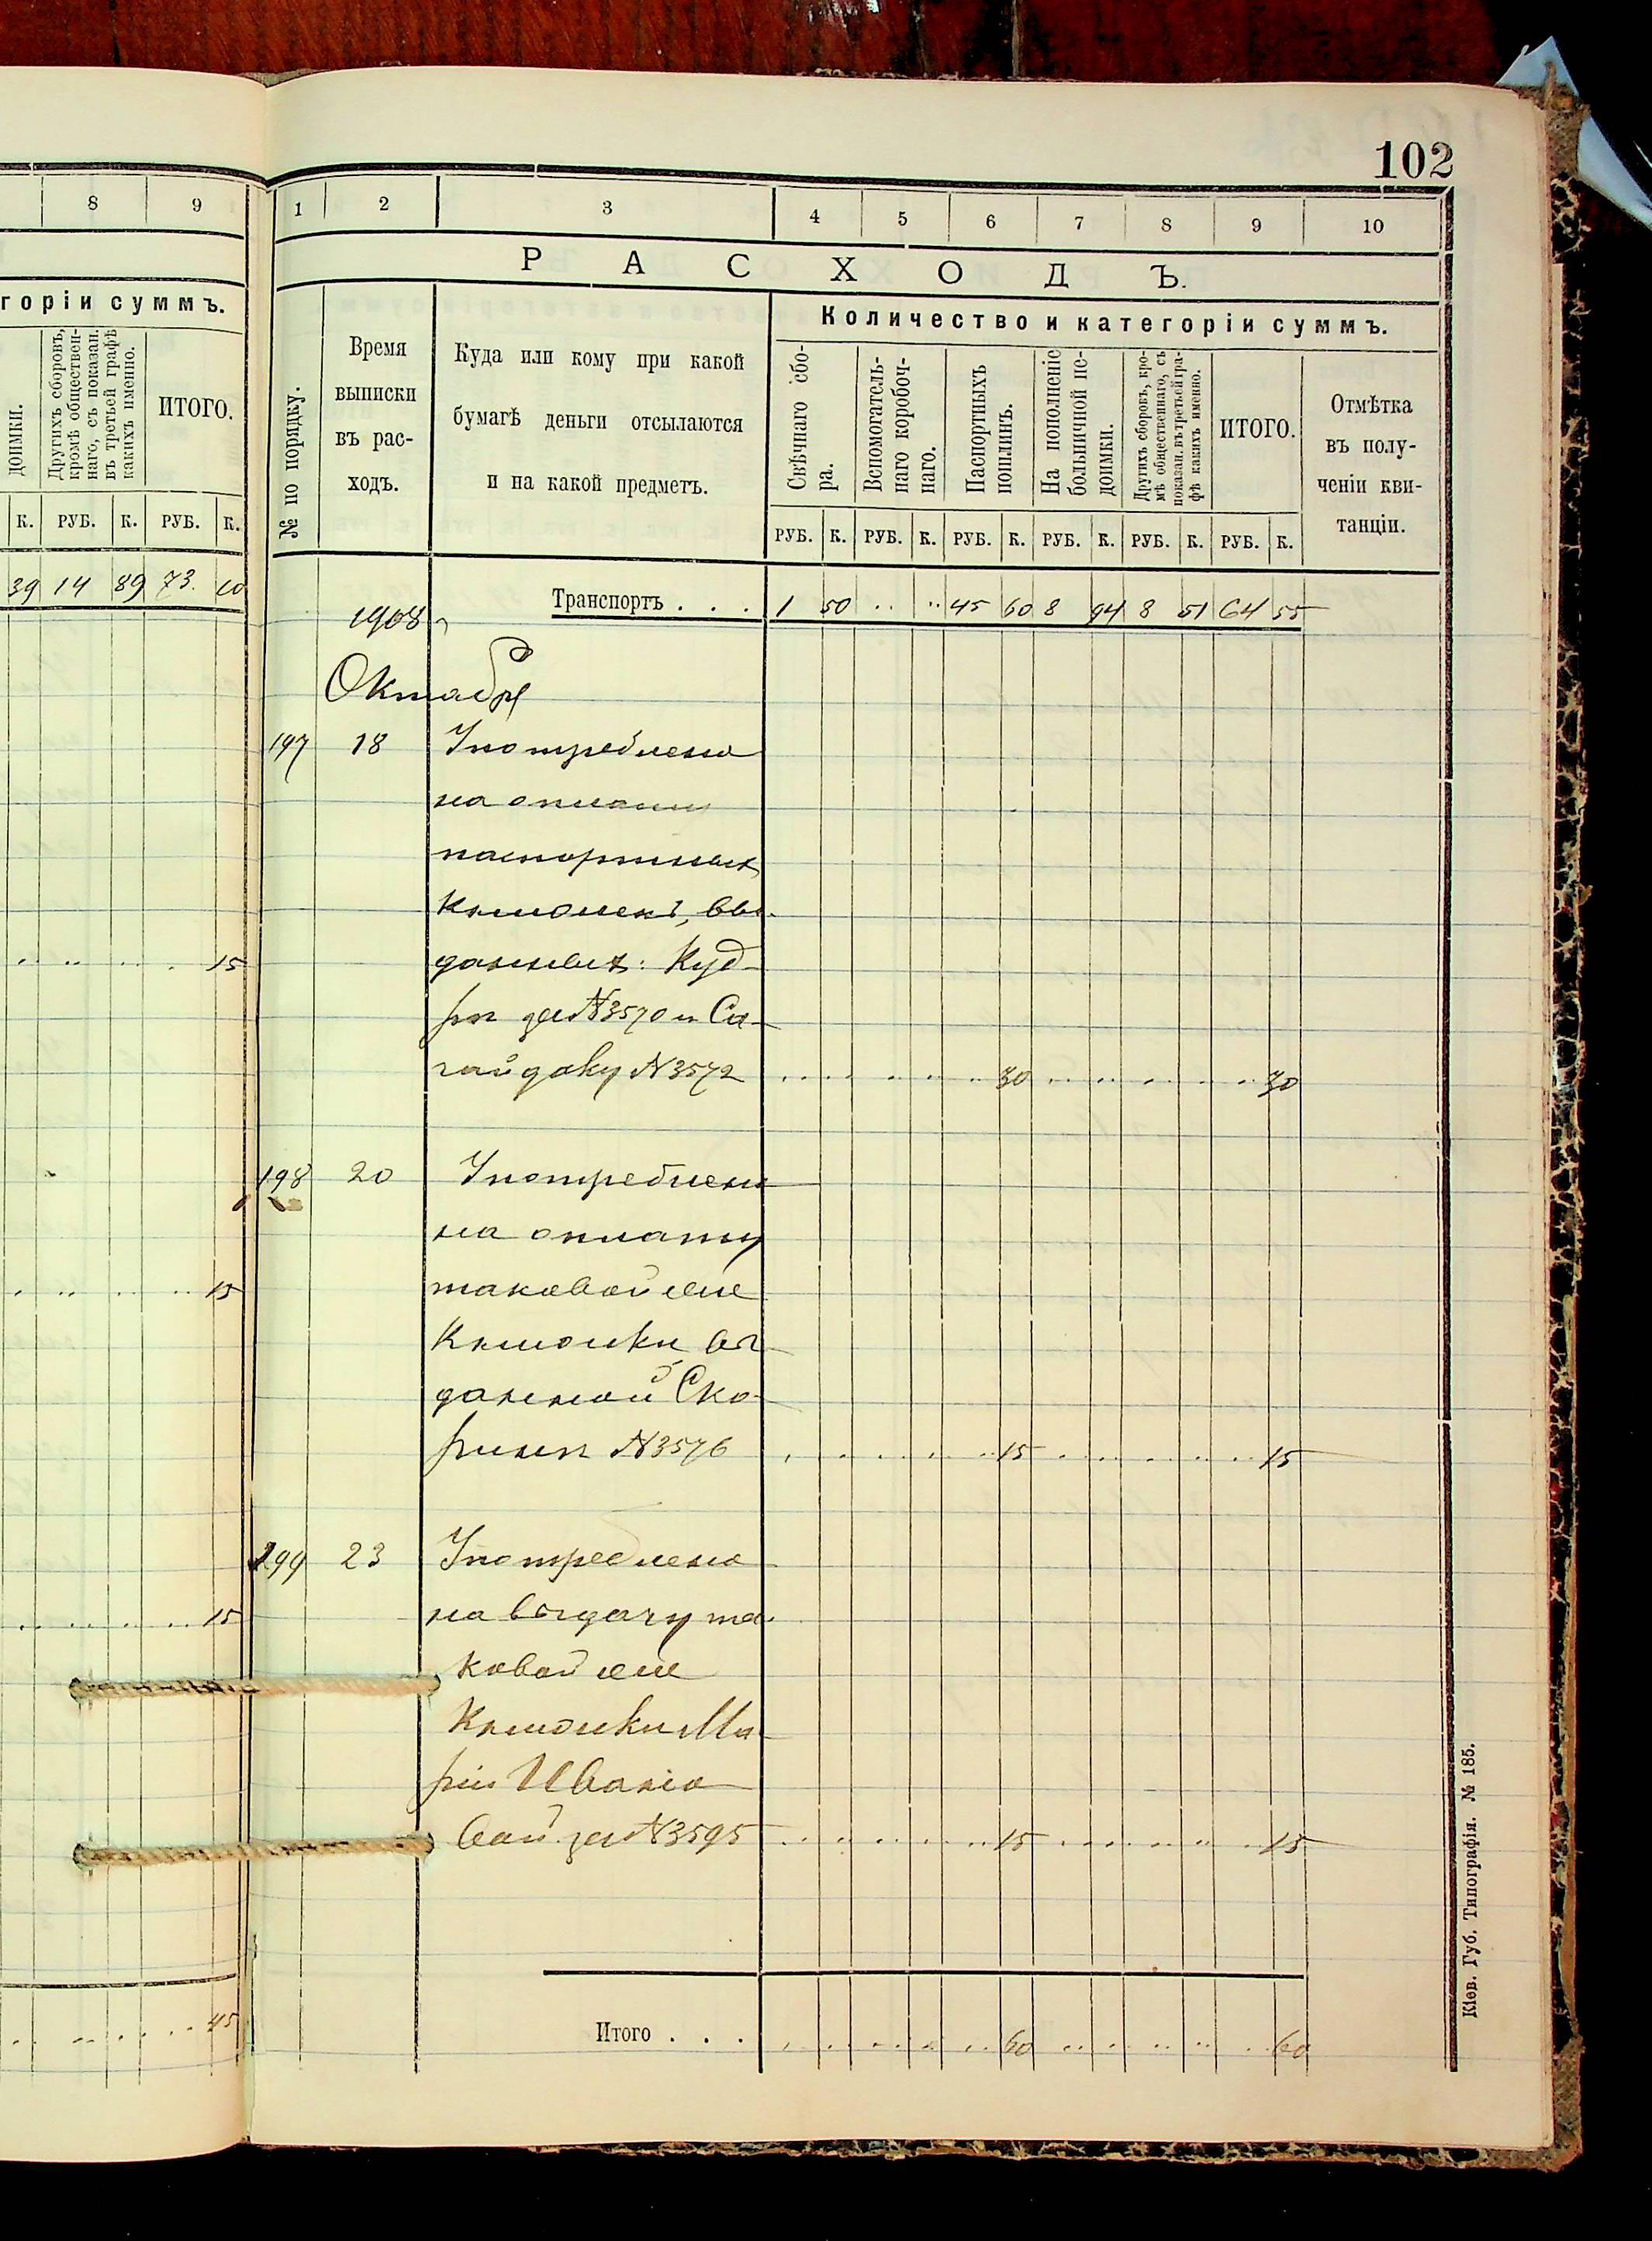 102
8 9
1 2 3 4 5 6 7 8 9 10
РАСХОДЪ.
горіи суммъ.
доимки.
Другихъ сборовъ,
кромѣ обществен-
наго, съ показан.
въ третьей графѣ
какихъ именно.
ИТОГО.
К. РУБ. К. РУБ. К.
39 14 89 73. 10
№ по порядку.
Время
выписки
въ рас-
ходъ.
Куда или кому при какой
бумагѣ деньги отсылаются
и на какой предметъ.
Количество и категоріи суммъ.
Свѣчнаго сбо-
ра.
Вспомогатель-
наго коробоч-
наго.
Паспортныхъ
пошлинъ.
На пополненіе
больничной не-
доимки.
Другихъ сборовъ, кро-
мѣ общественнаго, съ
показан. въ третьей гра-
фѣ какихъ именно.
ИТОГО.
Отмѣтка
въ полу-
ченіи кви-
танціи.
РУБ. К. РУБ. К. РУБ. К. РУБ. К. РУБ. К. РУБ. К.
Транспортъ . . . 1 50 .. .. 45 60 8 94 8 51 64 55
1908 г
Октябрь
197 18 Употреблено
на оплату
паспортныхъ
книжекъ, вы-
данныхъ: Куд-
рѣ за №3570 и Са-
гайдаку №3572 30 30
15
198 20 Употреблено
на оплату
таковой же
15
книжки вы
данной Ско-
ринѣ №3576 15 15
199 23 Употреблено
на выдачу та-
15
ковой же
книжки Ма-
ріи Ивано
вой за №3595 15 15
45
Итого . . . 60 60
Кіев. Губ. Типографія. № 185.